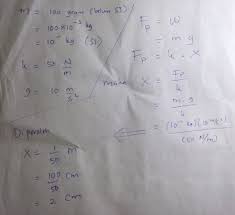 m = 100 gram (belum SI)
= 100 x 10⁻³ kg
= 10⁻¹ kg (SI)
k = 50 N/m
g = 10 m/s²
Fp = w
= m . g
Fp = k . x
maka
x = Fp/k
= m . g/k
= (10⁻¹ kg)(10 m/s²)/(50 N/m)
Diperoleh
x = 1/50 m
= 100/50 cm
= 2 cm